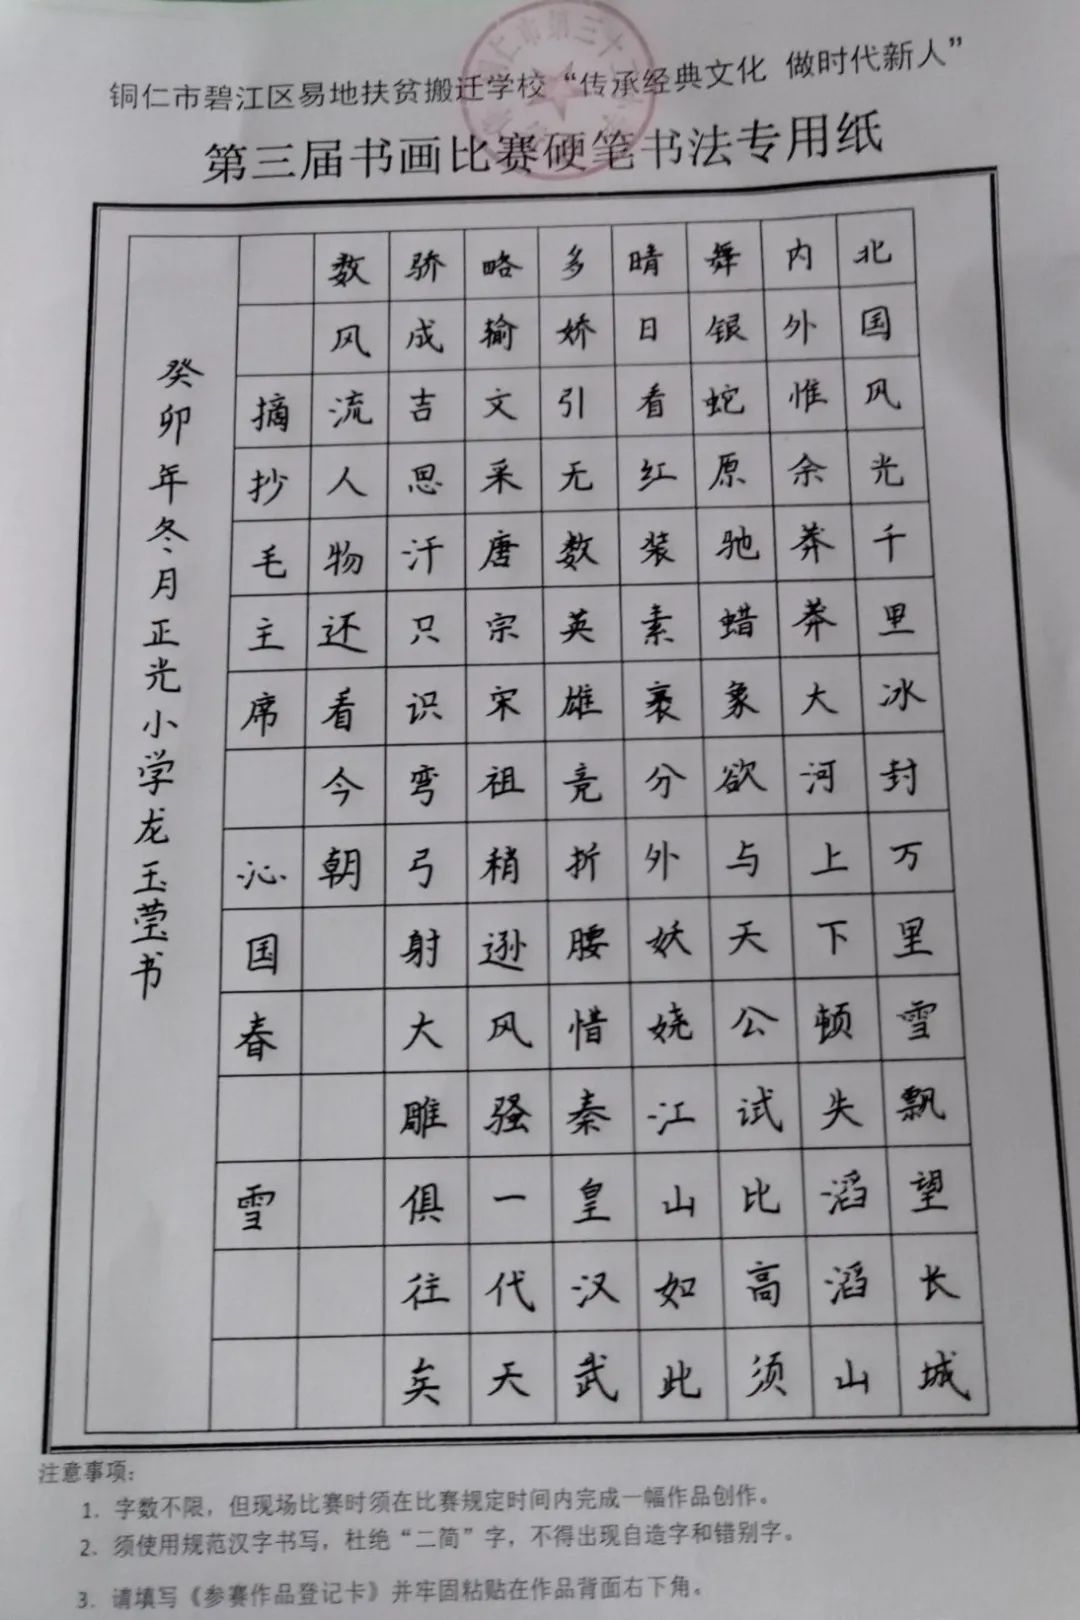 铜仁市碧江区易地扶贫搬迁学校“传承经典文化 做时代新人”
第三届书画比赛硬笔书法专用纸
仁市第三十
北国风光千里冰封万里雪飘望长城
内外惟余莽莽大河上下顿失滔滔山
舞银蛇原驰蜡象欲与天公试比高须
晴日看红装素裹分外妖娆江山如此
多娇引无数英雄竞折腰惜秦皇汉武
略输文采唐宗宋祖稍逊风骚一代天
骄成吉思汗只识弯弓射大雕俱往矣
数风流人物还看今朝
摘抄毛主席 沁国春 雪
癸卯年冬月正光小学龙玉莹书
注意事项:
1. 字数不限，但现场比赛时须在比赛规定时间内完成一幅作品创作。
2. 须使用规范汉字书写，杜绝“二简”字，不得出现自造字和错别字。
3. 请填写《参赛作品登记卡》并牢固粘贴在作品背面右下角。